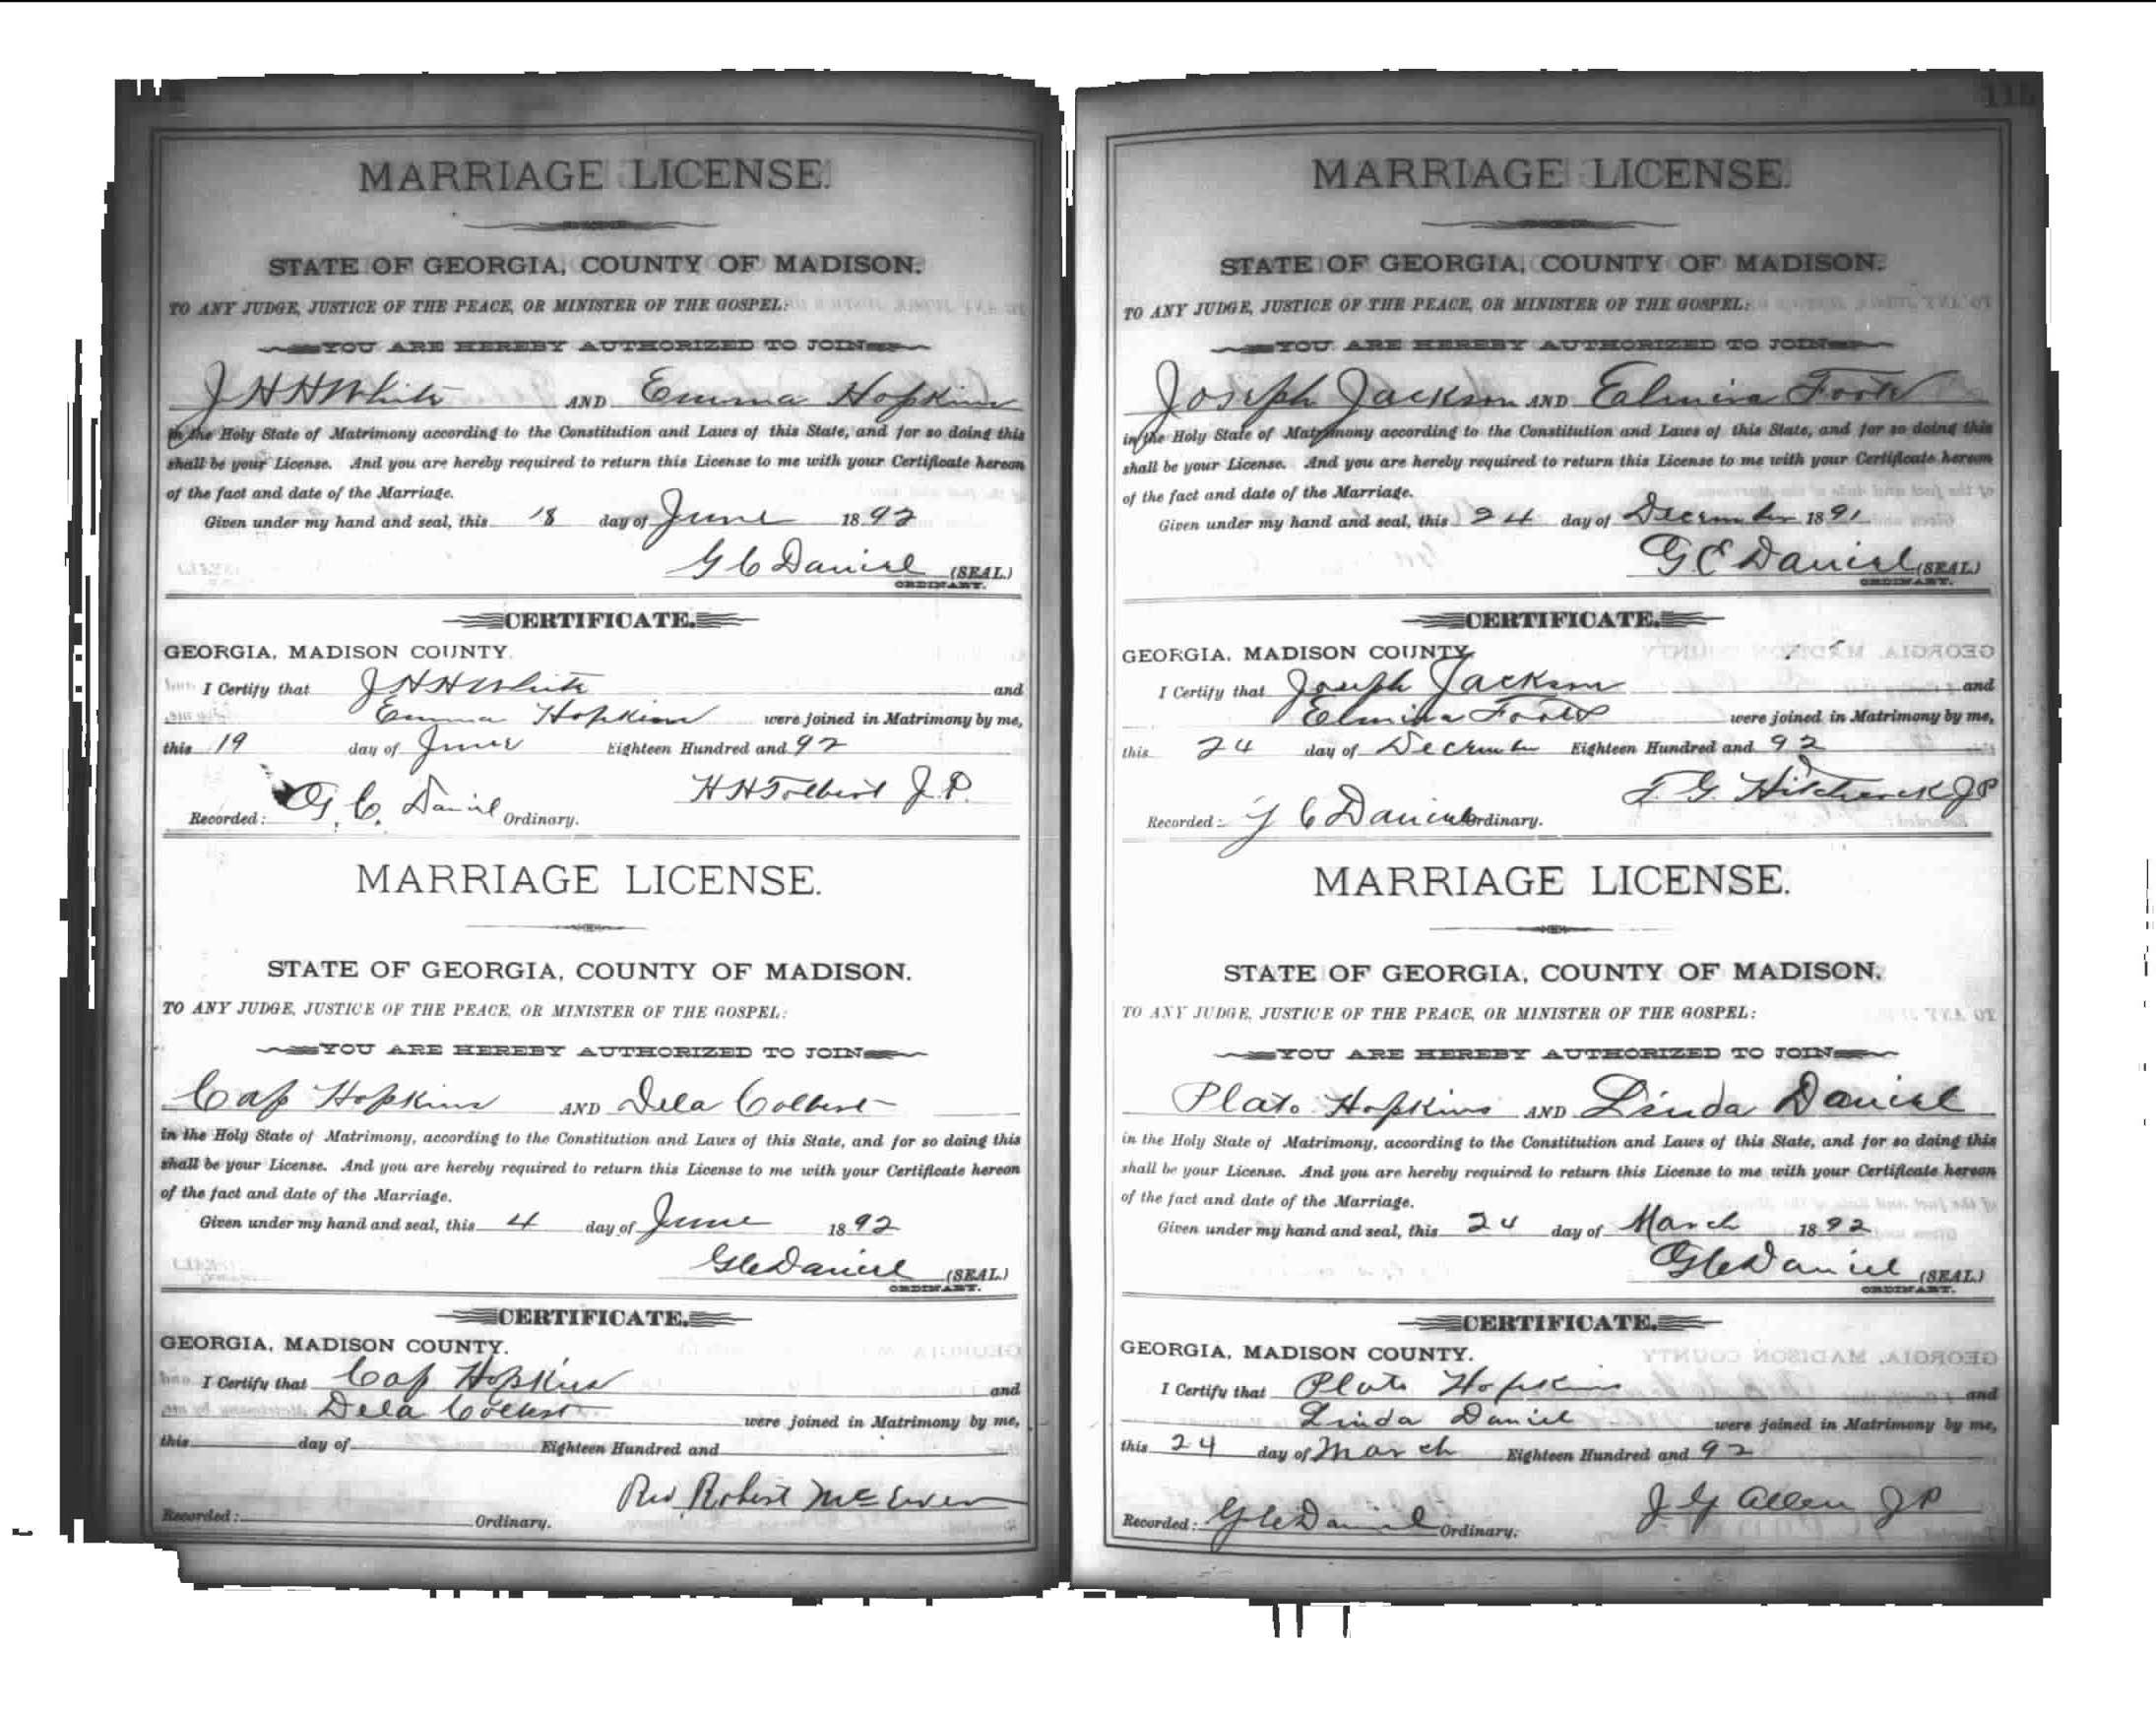 MARRIAGE LICENSE.
STATE OF GEORGIA, COUNTY OF MADISON.
TO ANY JUDGE, JUSTICE OF THE PEACE, OR MINISTER OF THE GOSPEL:
YOU ARE HEREBY AUTHORIZED TO JOIN
J H H White AND Emma Hopkins
in the Holy State of Matrimony according to the Constitution and Laws of this State, and for so doing this
shall be your License. And you are hereby required to return this License to me with your Certificate hereon
of the fact and date of the Marriage.
Given under my hand and seal, this 18 day of June 1892
G C Daniel (SEAL.)
ORDINARY.
CERTIFICATE.
GEORGIA, MADISON COUNTY.
I Certify that J H H White and
Emma Hopkins were joined in Matrimony by me,
this 19 day of June Eighteen Hundred and 92
H H Tolbert J.P.
Recorded: G. C. Daniel Ordinary.
MARRIAGE LICENSE.
STATE OF GEORGIA, COUNTY OF MADISON.
TO ANY JUDGE, JUSTICE OF THE PEACE, OR MINISTER OF THE GOSPEL:
YOU ARE HEREBY AUTHORIZED TO JOIN
Cap Hopkins AND Dela Colbert
in the Holy State of Matrimony, according to the Constitution and Laws of this State, and for so doing this
shall be your License. And you are hereby required to return this License to me with your Certificate hereon
of the fact and date of the Marriage.
Given under my hand and seal, this 4 day of June 1892
G C Daniel (SEAL.)
ORDINARY.
CERTIFICATE.
GEORGIA, MADISON COUNTY.
I Certify that Cap Hopkins and
Dela Colbert were joined in Matrimony by me,
this day of Eighteen Hundred and
Rev Robert McEwen
Recorded: Ordinary.
MARRIAGE LICENSE.
STATE OF GEORGIA, COUNTY OF MADISON.
TO ANY JUDGE, JUSTICE OF THE PEACE, OR MINISTER OF THE GOSPEL:
YOU ARE HEREBY AUTHORIZED TO JOIN
Joseph Jackson AND Elmira Foote
in the Holy State of Matrimony according to the Constitution and Laws of this State, and for so doing this
shall be your License. And you are hereby required to return this License to me with your Certificate hereon
of the fact and date of the Marriage.
Given under my hand and seal, this 24 day of December 1891
G C Daniel (SEAL.)
ORDINARY.
CERTIFICATE.
GEORGIA, MADISON COUNTY.
I Certify that Joseph Jackson and
Elmira Foote were joined in Matrimony by me,
this 24 day of December Eighteen Hundred and 92
T. G. Hitchcock JP
Recorded: G C Daniel Ordinary.
MARRIAGE LICENSE.
STATE OF GEORGIA, COUNTY OF MADISON.
TO ANY JUDGE, JUSTICE OF THE PEACE, OR MINISTER OF THE GOSPEL:
YOU ARE HEREBY AUTHORIZED TO JOIN
Plato Hopkins AND Linda Daniel
in the Holy State of Matrimony, according to the Constitution and Laws of this State, and for so doing this
shall be your License. And you are hereby required to return this License to me with your Certificate hereon
of the fact and date of the Marriage.
Given under my hand and seal, this 24 day of March 1892
G C Daniel (SEAL.)
ORDINARY.
CERTIFICATE.
GEORGIA, MADISON COUNTY.
I Certify that Plato Hopkins and
Linda Daniel were joined in Matrimony by me,
this 24 day of March Eighteen Hundred and 92
J G Allen JP
Recorded: G C Daniel Ordinary.